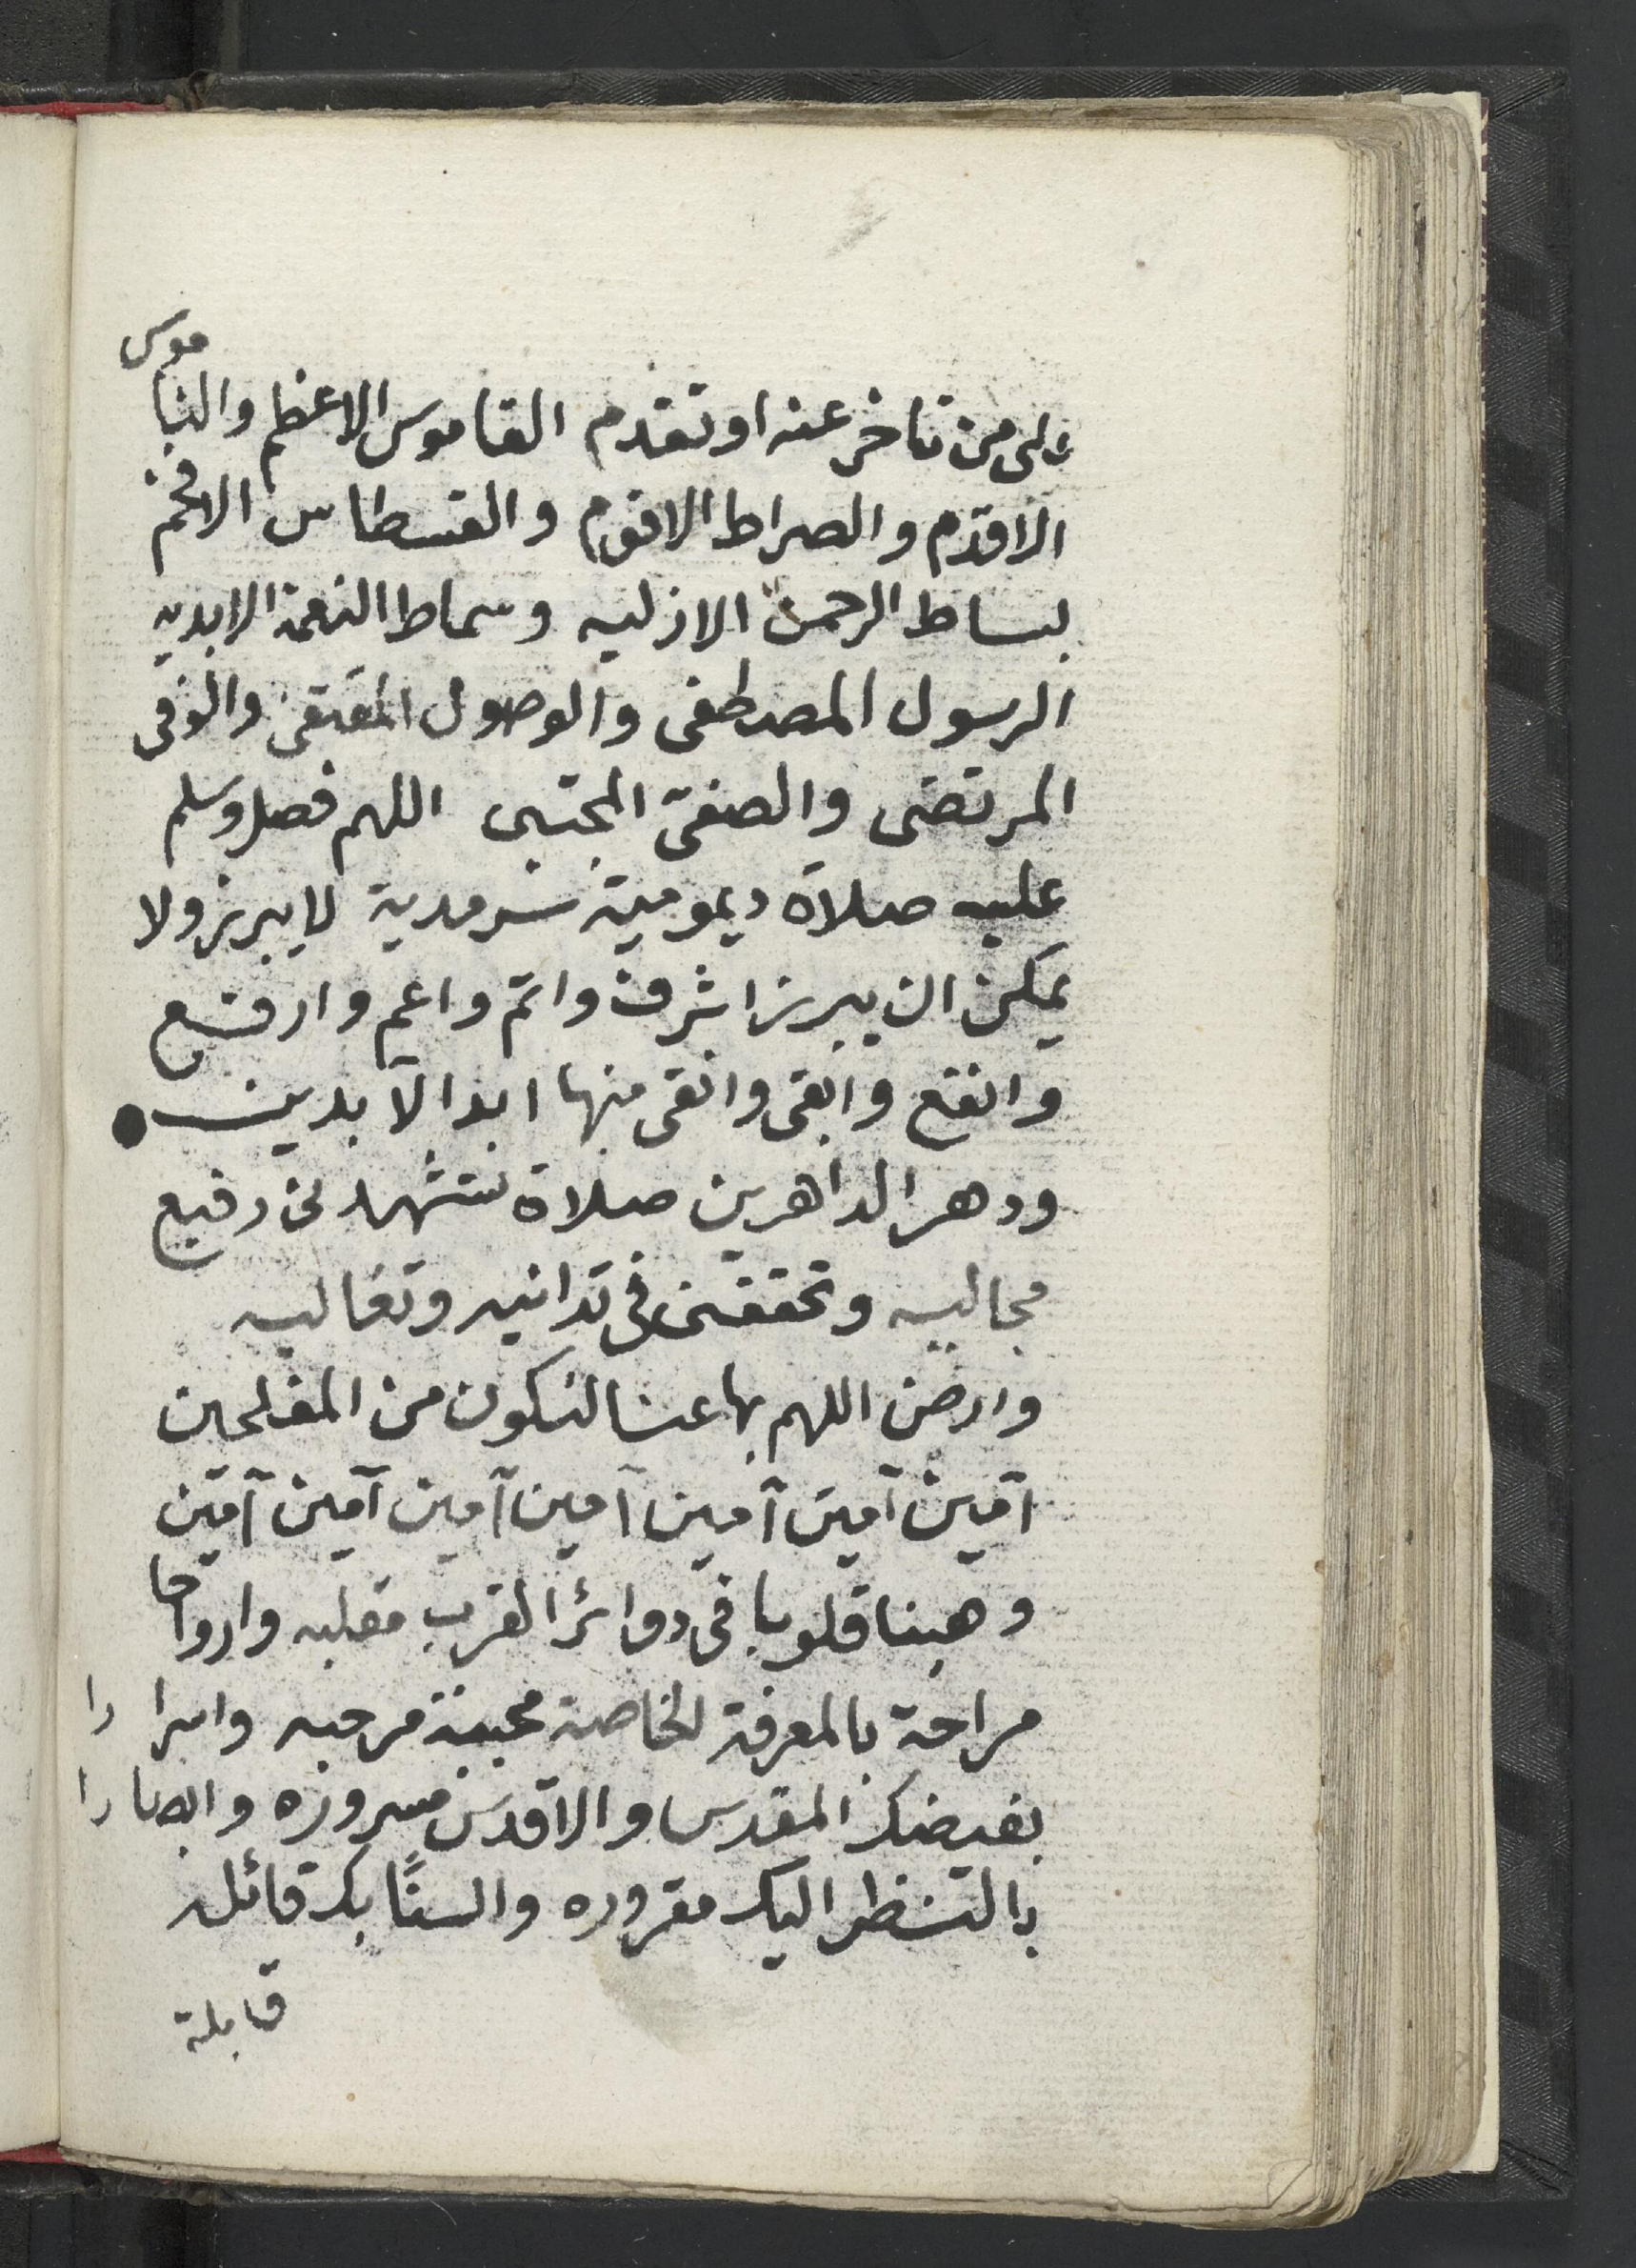 على من تاخر عنه او تقدم القاموس الاعظم والناموس
الاقدم والصراط الاقوم والقسطاس الافخم
بساط الرحمن الازليه وسماط النعمة الابديه
الرسول المصطفى والوصول المقتفى والوفى
المرتضى والصفىّ المجتبى اللهم فصل وسلم
عليه صلاة ديمومية سرمدية لا يبرز ولا
يمكن ان يبرز اشرف واتم واعم وارفع
وانفع وابقى وانقى منها ابد الآبدين
ودهر الداهرين صلاة تشهدنى رفيع
مجاليه وتحققنى فى تدانيه وتعاليه
وارض اللهم بها عنا لنكون من المفلحين
آمين آمين آمين آمين آمين آمين آمين
وهبنا قلوبا فى دوائر القرب مقلبه وارواحا
مراحة بالمعرفة الخاصة محببة مرحبه واسرارا
بفيضك المقدس والاقدس مسروره وابصارا
بالنظر اليك مقروره والسنًا بك قائله
قابلة